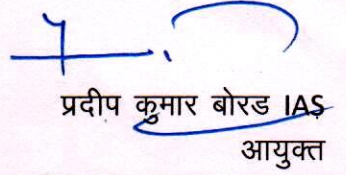 प्रदीप कुमार बोरड IAS
आयुक्त